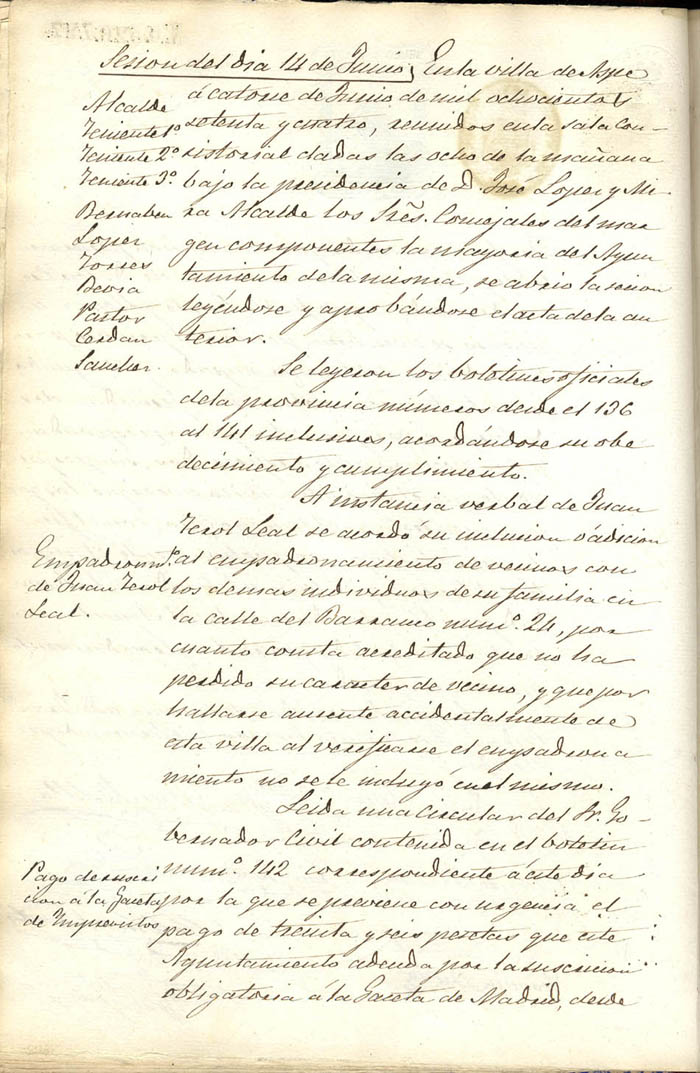 Sesion del dia 14 de Junio, En la villa de Aspe
á catorse de Junio de mil ochocientos
setenta y cuatro, reunidos en la sala Con-
sistorial dadas las ocho de la mañana
bajo la presidencia de D. José Loper y Mi-
ra Alcalde los Sres. Concejales del mar
gen componentes la mayoria del Ayun
tamiento de la misma, se abrio la secion
leyéndose y aprobándose el acta de la an
terior.
Alcalde
Teniente 1º
Teniente 2º
Teniente 3º
Bernabeu
Loper
Torres
Devia
Pastor
Cerdan
Sancher.
Se leyeron los boletines oficiales
de la provincia números desde el 136
al 141 inclusives, acordándose su obe
decimiento y cumplimiento.
A instancia verbal de Juan
Terol Leal se acordó su inclusion ó adicion
al empadronamiento de vecinos con
los demas individuos de su familia en
la calle del Barranco numº. 24, por
cuanto consta acreditado que no ha
perdido su caracter de vecino, y que por
hallarse ausente accidentalmente de
esta villa al verificarse el empadrona
miento no se le incluyó en el mismo.
Empadronmto.
de Juan Terol
Leal.
Leida una Circular del Sr. Go-
bernador Civil contenida en el boletin
numº. 142 correspondiente á este dia
por la que se previene con urgencia el
pago de treinta y seis pesetas que este
Ayuntamiento adeuda por la suscricion
obligatoria á la Gaceta de Madrid, desde
Pago de suscri
cion á la Gaceta
de Imprevistos